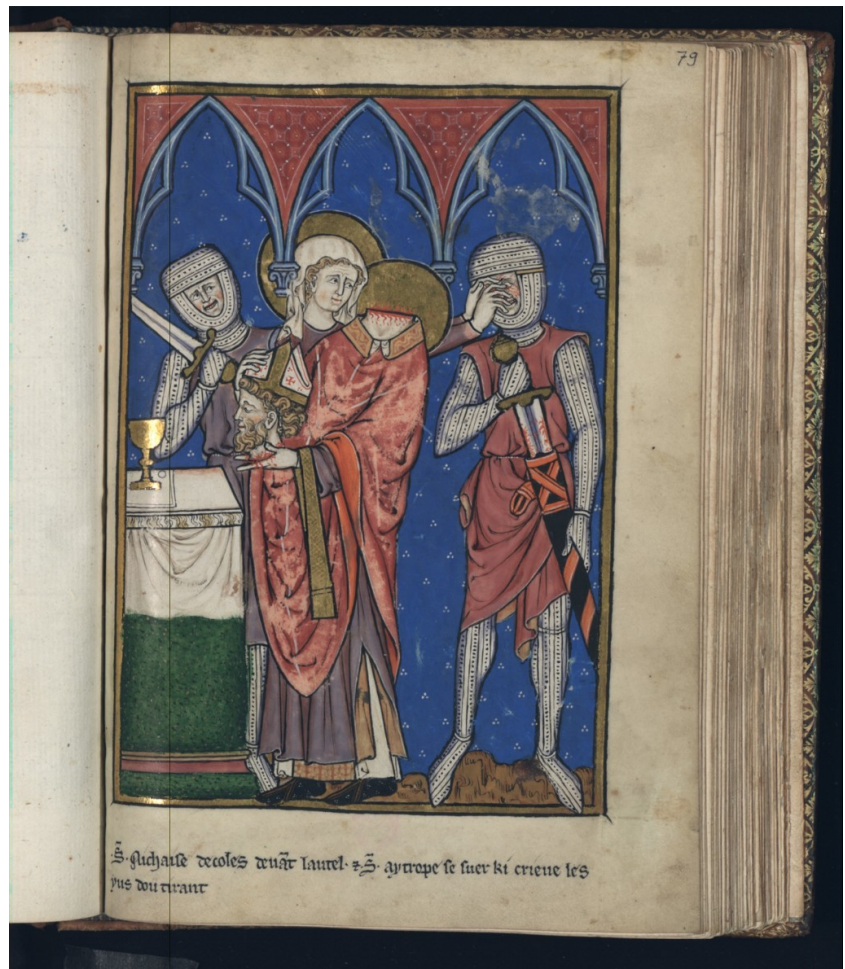 79
.S̄. Nichaise decoles deuāt lautel. ⁊ S̄. aytrope se suer ki crieue les
yus dou tirant